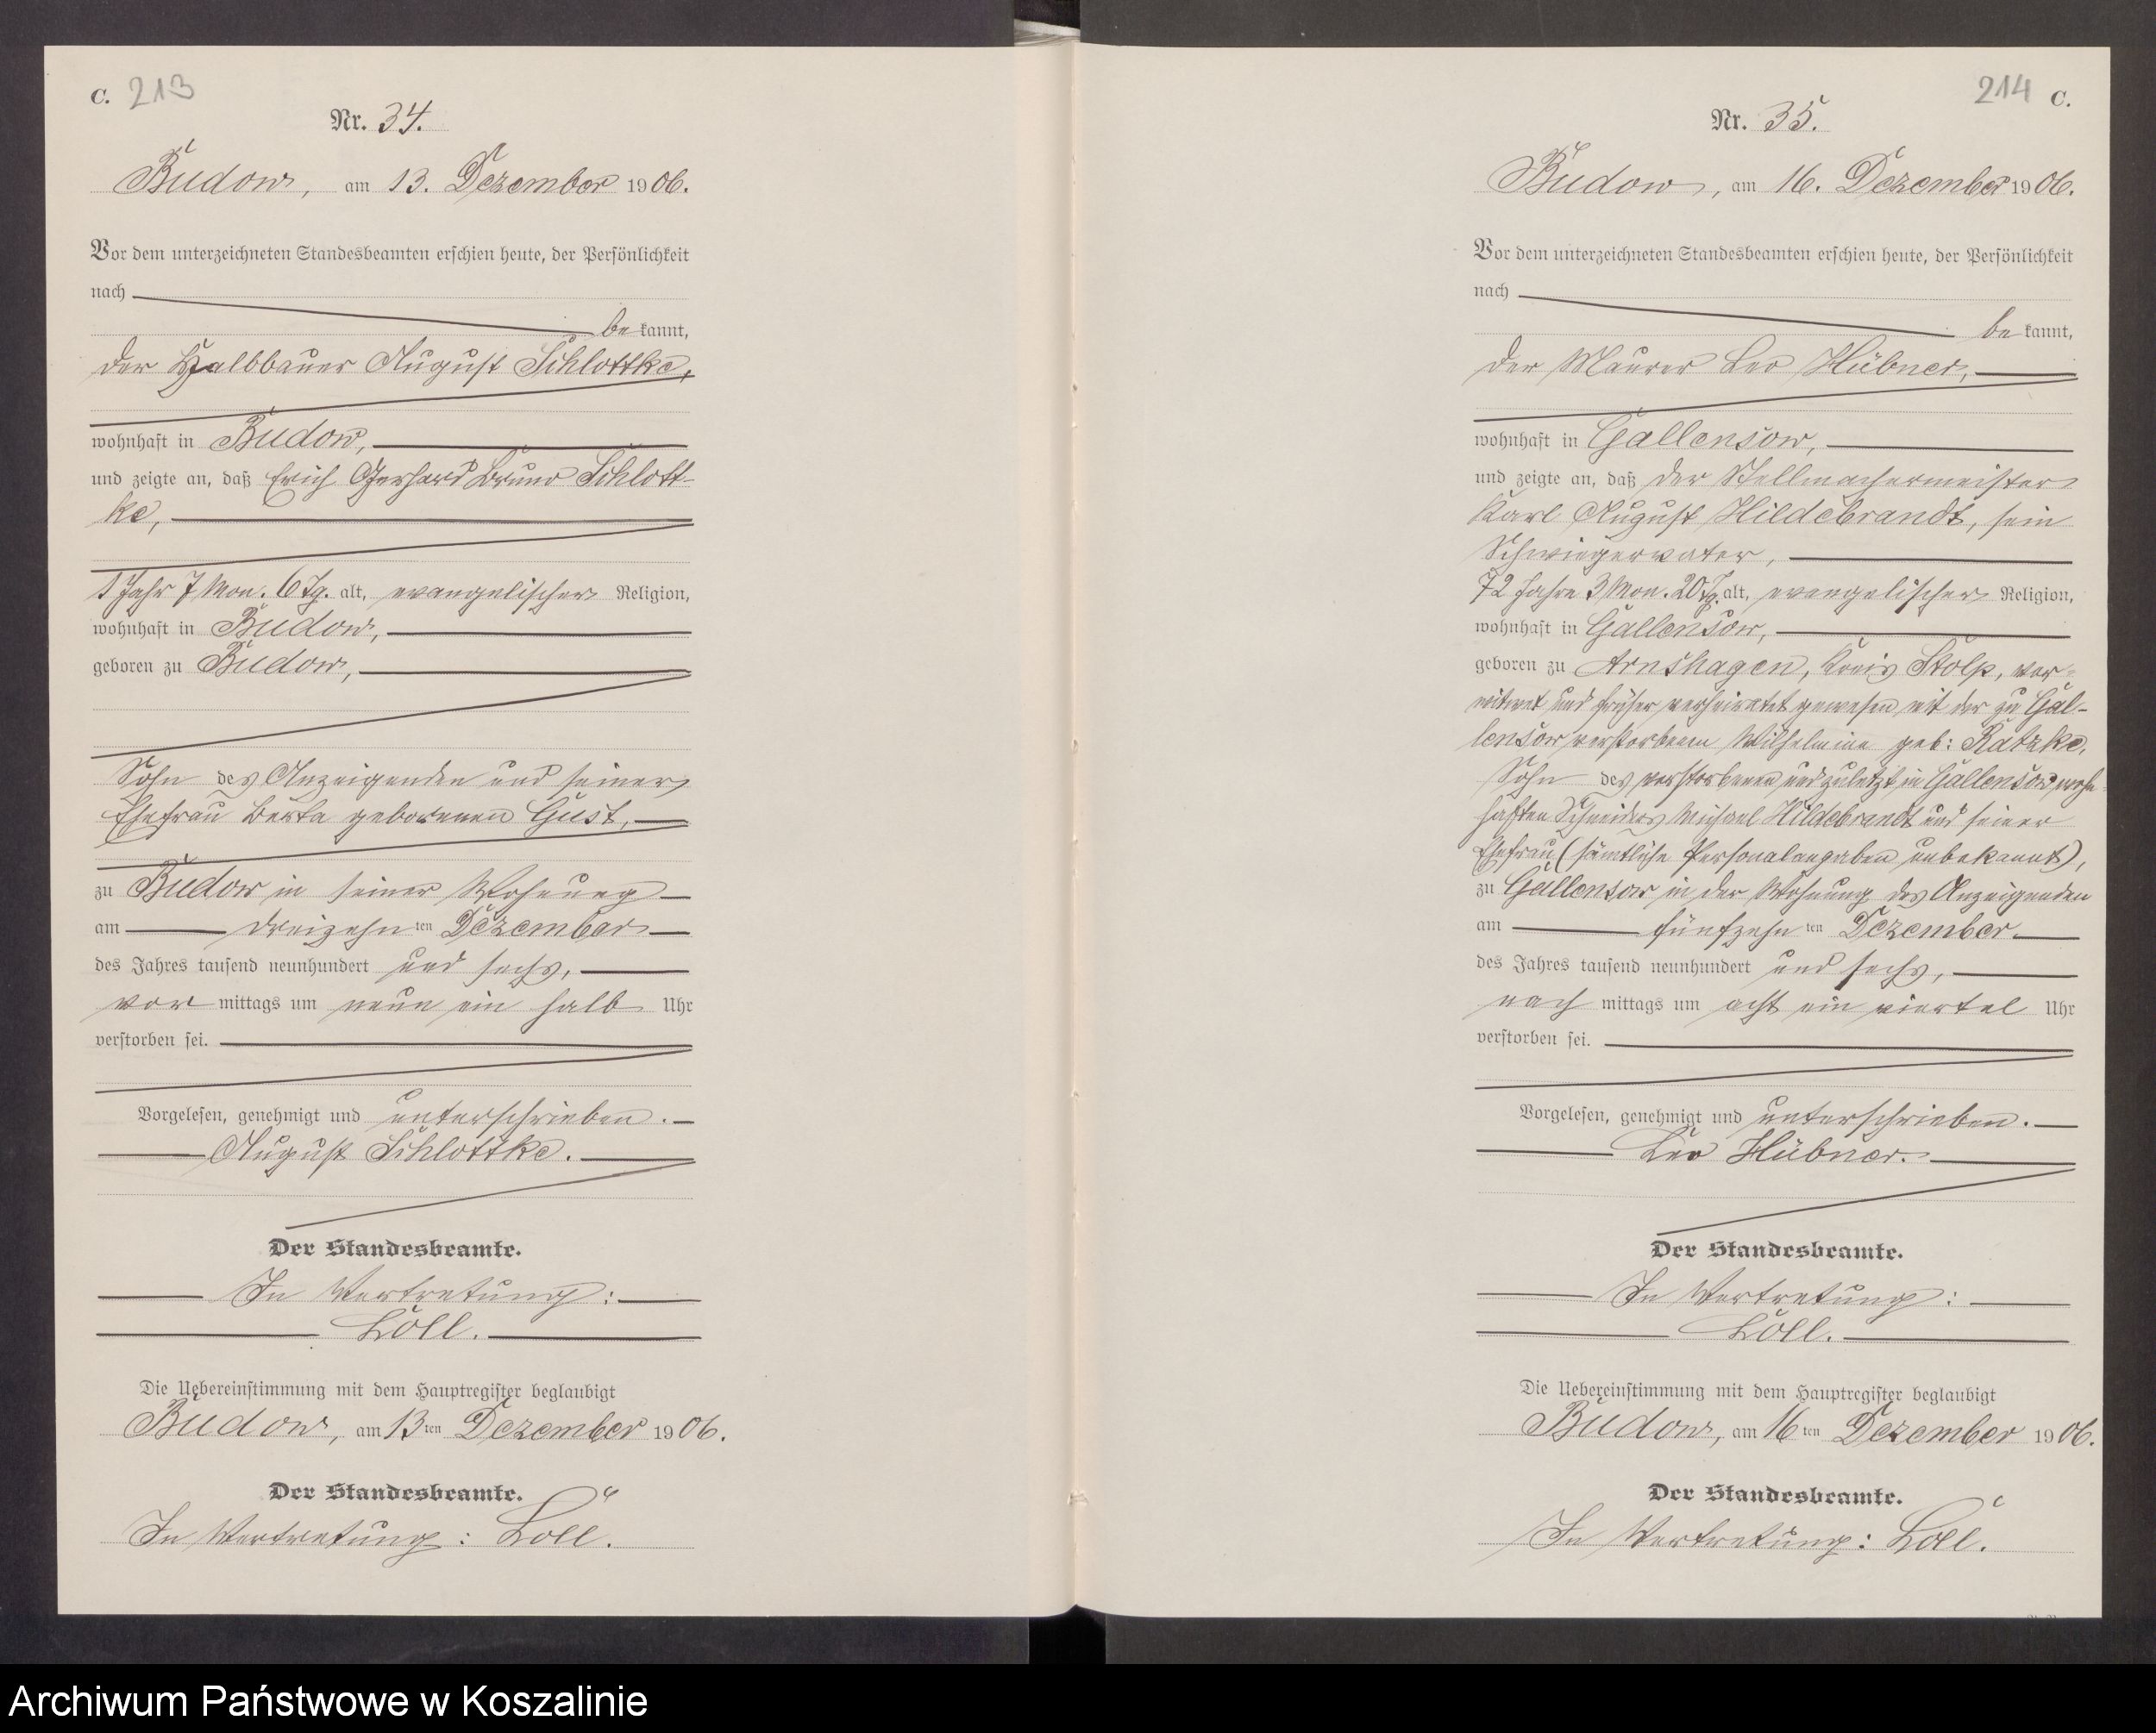 C. 213
Nr. 34.
Budow, am 13. Dezember 1906.
Vor dem unterzeichneten Standesbeamten erschien heute, der Persönlichkeit
nach
bekannt,
der Halbbauer August Schlottke,
wohnhaft in Budow,
und zeigte an, daß Erich Gerhard Bruno Schlott-
ke,
1 Jahr 7 Mon. 6 Tg. alt, evangelischer Religion,
wohnhaft in Budow,
geboren zu Budow,
Sohn des Anzeigenden und seiner
Ehefrau Berta geborenen Gust,
zu Budow in seiner Wohnung
am dreizehnten Dezember
des Jahres tausend neunhundert und sechs,
vormittags um neun ein halb Uhr
verstorben sei.
Vorgelesen, genehmigt und unterschrieben.
August Schlottke.
Der Standesbeamte.
In Vertretung:
Löll.
Die Uebereinstimmung mit dem Hauptregister beglaubigt
Budow, am 13ten Dezember 1906.
Der Standesbeamte.
In Vertretung: Löll.
214 C.
Nr. 35.
Budow, am 16. Dezember 1906.
Vor dem unterzeichneten Standesbeamten erschien heute, der Persönlichkeit
nach
bekannt,
der Maurer Leo Hübner,
wohnhaft in Gallensow,
und zeigte an, daß der Stellmachermeister
Karl August Hildebrandt, sein
Schwiegervater,
72 Jahre 3 Mon. 20 Tg. alt, evangelischer Religion,
wohnhaft in Gallensow,
geboren zu Arnshagen, Kreis Stolp, ver-
witwet und früher verheiratet gewesen mit der zu Gal-
lensow verstorbenen Wilhelmine geb: Ratzke,
Sohn des verstorbenen und zuletzt in Gallensow wohn-
haften Schneiders Michael Hildebrandt und seiner
Ehefrau (sämtliche Personalangaben unbekannt),
zu Gallensow in der Wohnung des Anzeigenden
am fünfzehnten Dezember
des Jahres tausend neunhundert und sechs,
nachmittags um acht ein viertel Uhr
verstorben sei.
Vorgelesen, genehmigt und unterschrieben.
Leo Hübner.
Der Standesbeamte.
In Vertretung:
Löll.
Die Uebereinstimmung mit dem Hauptregister beglaubigt
Budow, am 16ten Dezember 1906.
Der Standesbeamte.
In Vertretung: Löll.
Archiwum Państwowe w Koszalinie